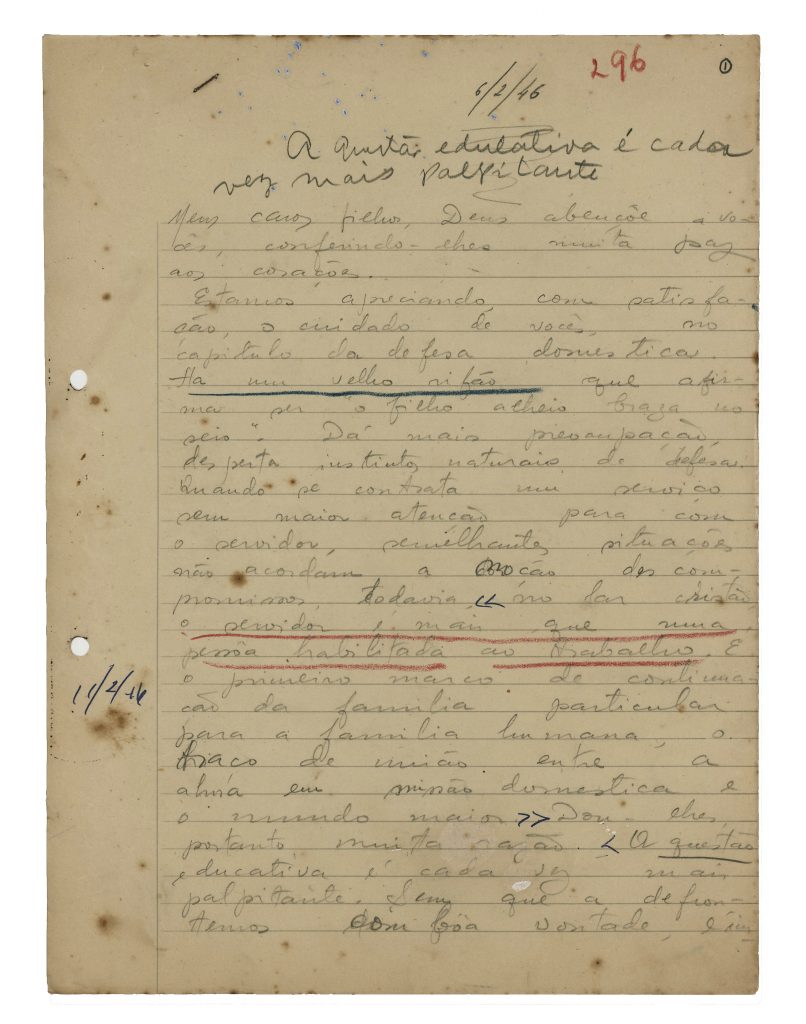 296
1
6/2/46
A questão educativa é cada
vez mais palpitante
Meus caros filhos, Deus abençôe a vo-
cês, conferindo-lhes muita paz
aos corações.
Estamos apreciando, com satisfa-
ção, o cuidado de vocês, no
capitulo da defesa domestica.
Ha um velho rifão que afir-
ma ser "o filho alheio braza no
seio". Dá mais preocupação,
desperta instintos naturais de defesa.
Quando se contrata um serviço
sem maior atenção para com
o servidor, semelhantes situações
não acordam a noção dos com-
promissos, todavia, << no lar cristão,
o servidor é mais que uma
pessôa habilitada ao trabalho. E
o primeiro marco de continua-
11/2/46
ção da familia particular
para a familia humana, o
traço de união entre a
alma em missão domestica e
o mundo maior >> Dou-lhes,
portanto, muita razão. < A questão
educativa é cada vez mais
palpitante. Sem que a defron-
temos com bôa vontade, é im-